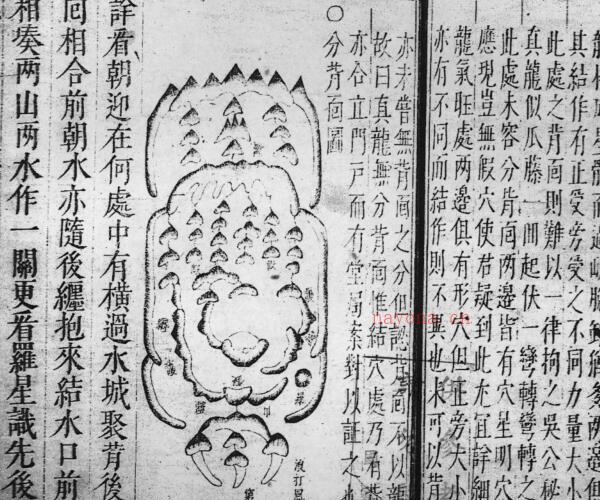 其結作有正受旁受之不同力量大小
此處之背面則難以一律拘之吳公秘
真龍似瓜藤一間起伏一彎轉彎轉之
此處未容分背面兩邊皆有穴星明穴
應現豈無假穴使君疑到此尤宜詳細
龍氣旺處兩邊俱有形穴但正旁大小
亦有不同而結作則不異也未可以背
亦未嘗無背面之分但認背面不以龍
故曰真龍無分背面惟結穴處乃有背
亦合立門戶而有堂局案對以証之也
○分背面圖
詳看朝迎在何處中有橫過水城聚背後
同相合前朝水亦隨後纏抱來結水口前
相湊兩山兩水作一關更看羅星識先後
nayona.cn